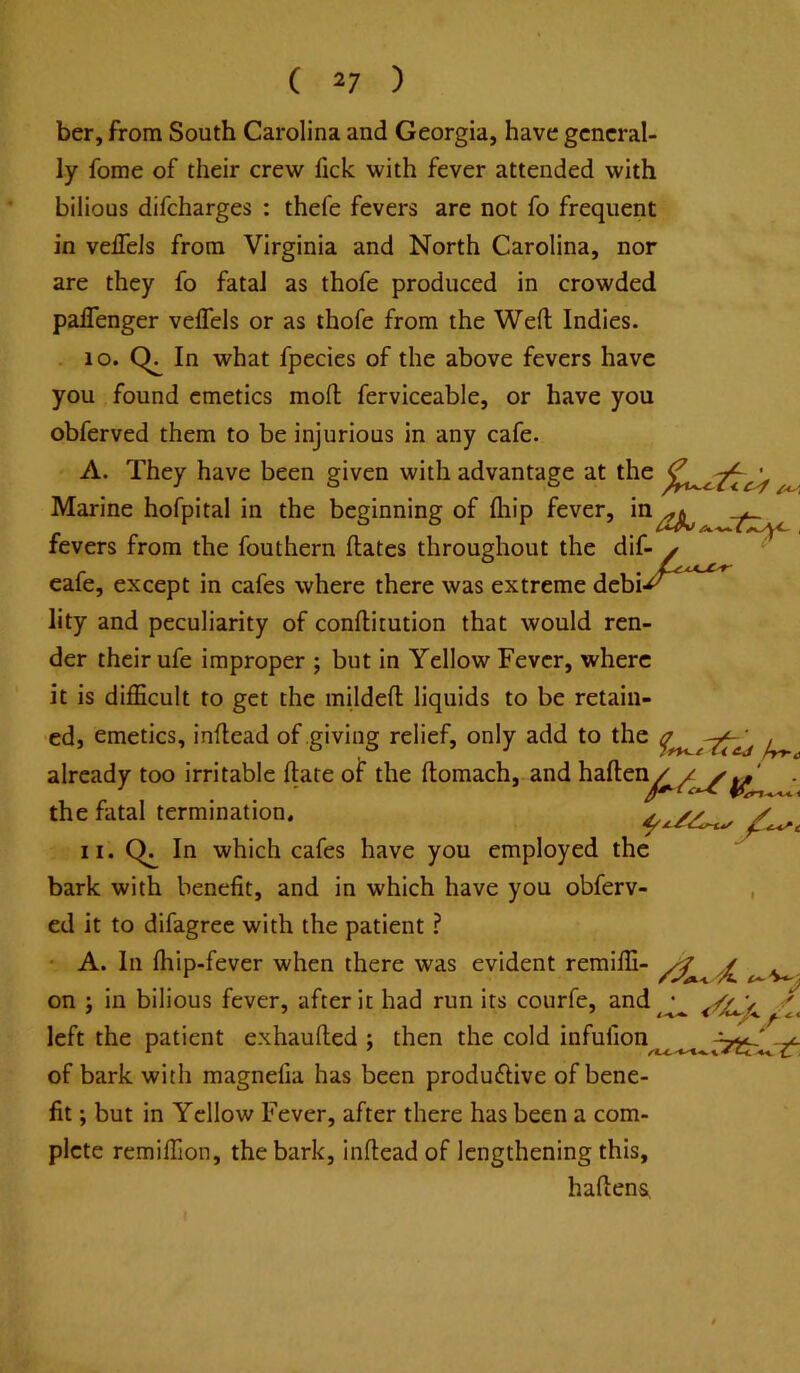 ( 27 )
ber, from South Carolina and Georgia, have general-
ly ſome of their crew ſick with fever attended with
bilious diſcharges : theſe fevers are not ſo frequent
in veſſels from Virginia and North Carolina, nor
are they ſo fatal as thoſe produced in crowded
paſſenger veſſels or as thoſe from the Weſt Indies.
10. Q. In what ſpecies of the above fevers have
you found emetics moſt ſerviceable, or have you
obſerved them to be injurious in any caſe.
A. They have been given with advantage at the
Marine hoſpital in the beginning of ſhip fever, in
fevers from the ſouthern ſtates throughout the diſ-
eaſe, except in caſes where there was extreme debi-
lity and peculiarity of conſtitution that would ren-
der their uſe improper ; but in Yellow Fever, where
it is difficult to get the mildeſt liquids to be retain-
ed, emetics, inſtead of giving relief, only add to the
already too irritable ſtate of the ſtomach, and haſten
the fatal termination.
11. Q. In which caſes have you employed the
bark with benefit, and in which have you obſerv-
ed it to diſagree with the patient ?
A. In ſhip-fever when there was evident remiſſi-
on ; in bilious fever, after it had run its courſe, and
left the patient exhauſted ; then the cold infuſion
of bark with magneſia has been productive of bene-
fit ; but in Yellow Fever, after there has been a com-
plete remiſſion, the bark, inſtead of lengthening this,
haſtens